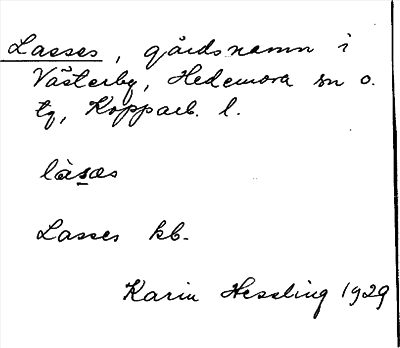 Lasses, gårdsnamn i
Västerby, Hedemora sn o.
tg, Kopparb. l.
làsas
Lasses kb.
Karin Hessling 1929